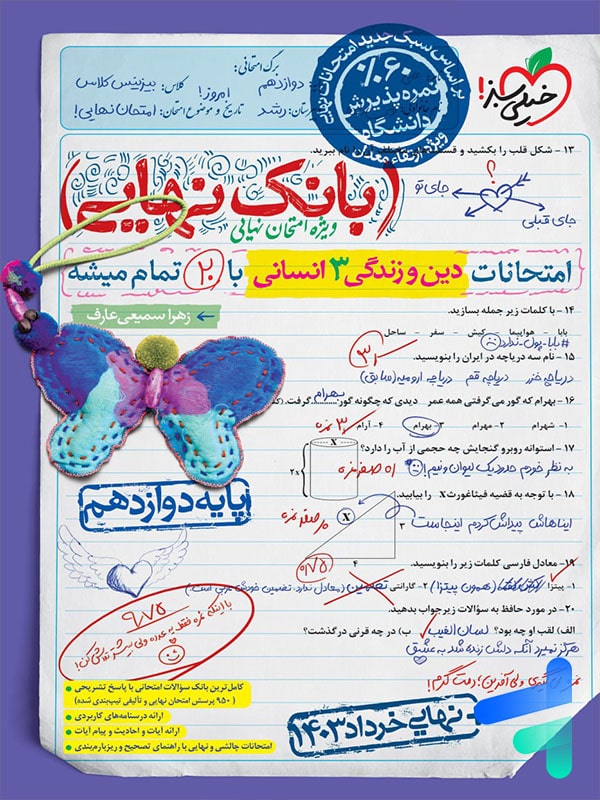 برگ امتحانی:
دوازدهم
کلاس: بیزینس کلاس
امروز!
تاریخ و موضوع امتحان: امتحان نهایی!
رشد
بر اساس سبک جدید امتحانات نهایی
۶۰٪
نمره پذیرش
دانشگاه
ویژه ارتقاء معدل
خیلی سبز!
۱۳ - شکل قلب را بکشید و
نام ببرید.
؟
جای تو
جای قبلی
(بانک نهایی)
ویژه امتحان نهایی
امتحانات دین و زندگی ۳ انسانی با ۲۰ تمام میشه
زهرا سمیعی عارف
۱۴ - با کلمات زیر جمله بسازید.
بابا - هواپیما - کیش - سفر - ساحل
#بابا-پول-ندارد
۱۵ - نام سه دریاچه در ایران را بنویسید.
دریاچه خزر دریاچه قم دریاچه ارومیه (سابق)
۱۶ - بهرام که گور می‌گرفتی همه عمر دیدی که چگونه گور بهرام گرفت.
۱- شهرام ۲- مهرام ۳- بهرام ۴- آرام
۱۷ - استوانه روبرو گنجایش چه حجمی از آب را دارد؟
به نظر خودم حدود یک لیوان و نیم!
X
2x
۱۸ - با توجه به قضیه فیثاغورث X را بیابید.
ایناهاش پیداش کردم اینجاست
X
۳
۴
پایه دوازدهم
۱۹ - معادل فارسی کلمات زیر را بنویسید.
۱- پیتزا
(همون پیتزا) ۲- گارانتی تضمین (معادل ندارد. تضمین خودش عربی است!)
۲۰ - در مورد حافظ به سؤالات زیر جواب بدهید.
الف) لقب او چه بود؟ لسان الغیب ب) در چه قرنی درگذشت؟
هرگز نمیرد آنکه دلش زنده شد به عشق
۹/۷۵
کامل‌ترین بانک سؤالات امتحانی با پاسخ تشریحی
(۹۵۰ پرسش امتحان نهایی و تألیفی تیپ‌بندی شده)
ارائه درسنامه‌های کاربردی
ارائه آیات و احادیث و پیام آیات
امتحانات چالشی و نهایی با راهنمای تصحیح و ریزبارم‌بندی
+ نهایی خرداد ۱۴۰۳